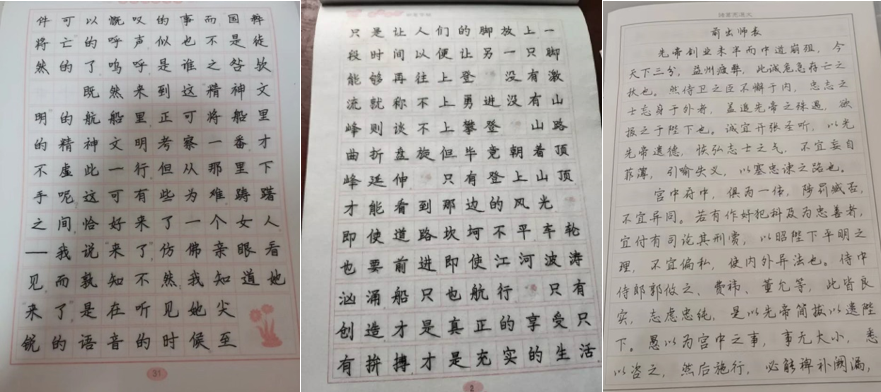 件可以慨叹的事而国粹
将亡的呼声似也不是徒
然的了呜呼是谁之咎欤
既然来到这精神文
明的航船里正可将船里
的精神文明考察一番才
不虚此一行但从那里下
手呢这可有些为难踌躇
之间恰好来了一个女人
——我说来了仿佛亲眼看
见而孰知不然我知道她
来了是在听见她尖
锐的语音的时候至
31
只是让人们的脚放上一
段时间以便让另一只脚
能够再往上登 没有激
流就称不上勇进没有山
峰则谈不上攀登 山路
曲折盘旋但毕竟朝着顶
峰延伸 只有登上山顶
才能看到那边的风光
即使道路坎坷不平车轮
也要前进即使江河波涛
汹涌船只也航行 只有
创造才是真正的享受只
有拚搏才是充实的生活
2
前出师表
先帝创业未半而中道崩殂，今
天下三分，益州疲弊，此诚危急存亡之
秋也。然侍卫之臣不懈于内，忠志之
士忘身于外者，盖追先帝之殊遇，欲
报之于陛下也。诚宜开张圣听，以光
先帝遗德，恢弘志士之气，不宜妄自
菲薄，引喻失义，以塞忠谏之路也。
宫中府中，俱为一体，陟罚臧否，
不宜异同。若有作奸犯科及为忠善者，
宜付有司论其刑赏，以昭陛下平明之
理，不宜偏私，使内外异法也。侍中
侍郎郭攸之、费祎、董允等，此皆良
实，志虑忠纯，是以先帝简拔以遗陛
下。愚以为宫中之事，事无大小，悉
以咨之，然后施行，必能裨补阙漏，